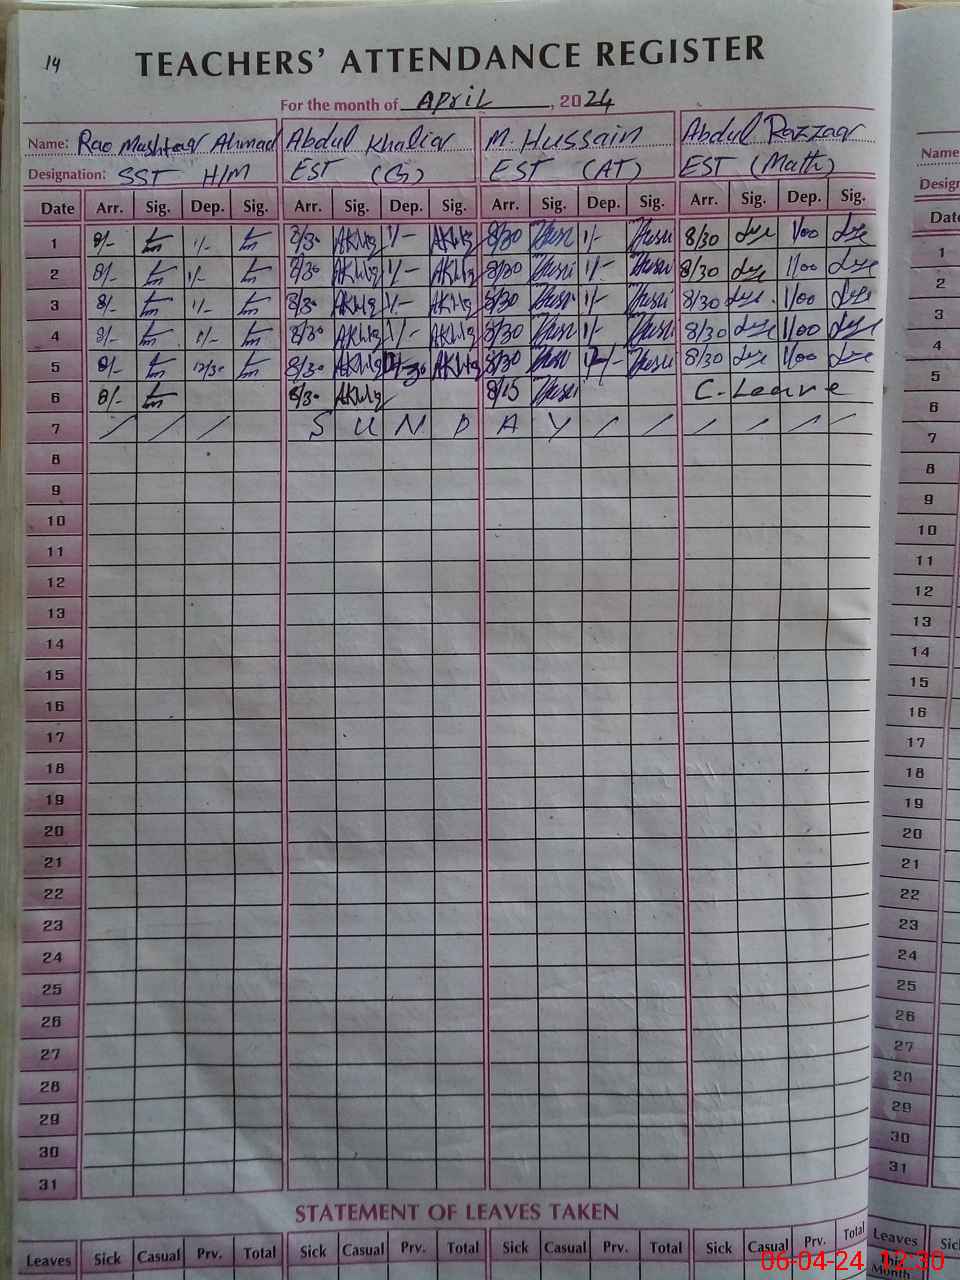 14
TEACHERS' ATTENDANCE REGISTER
For the month of April, 2024
Name: Rao Mushtaqr Ahmad Abdul Khaliqr M. Hussain Abdul Razzaqr
Designation: SST H/M EST (G) EST (AT) EST (Math)
Date Arr. Sig. Dep. Sig. Arr. Sig. Dep. Sig. Arr. Sig. Dep. Sig. Arr. Sig. Dep. Sig.
1 8/- 1/- 8/30 1/- 8/30 1/- 8/30 1/00
2 8/- 1/- 8/30 1/- 8/30 1/- 8/30 1/00
3 8/- 1/- 8/30 1/- 8/30 1/- 8/30 1/00
4 8/- 1/- 8/30 1/- 8/30 1/- 8/30 1/00
5 8/- 12/30 8/30 8/30 8/30 1/00
6 8/- 8/30 8/15 C-Leave
7 / / / S U N D A Y / / / / / /
8
9
10
11
12
13
14
15
16
17
18
19
20
21
22
23
24
25
26
27
28
29
30
31
STATEMENT OF LEAVES TAKEN
Leaves Sick Casual Prv. Total Sick Casual Prv. Total Sick Casual Prv. Total Sick Casual Prv. Total
Name
Design
Date
1
2
3
4
5
6
7
8
9
10
11
12
13
14
15
16
17
18
19
20
21
22
23
24
25
26
27
28
29
30
31
Leaves Sic
This
Month
06-04-24, 12:30